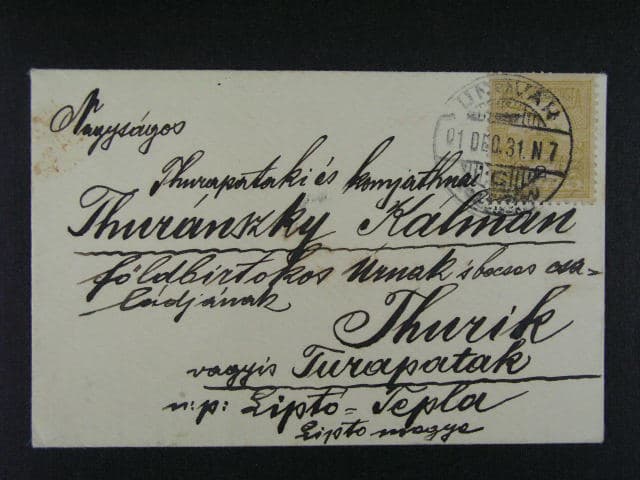 Nagyságos
Thurapataki és komjáthnai
Thuránszky Kálmán
földbirtokos Úrnak s becses csa-
ládjának
Thurik
vagyis Turapatak
u: p: Liptó = Tepla
Lipto megye
01 DEC. 31. N 7